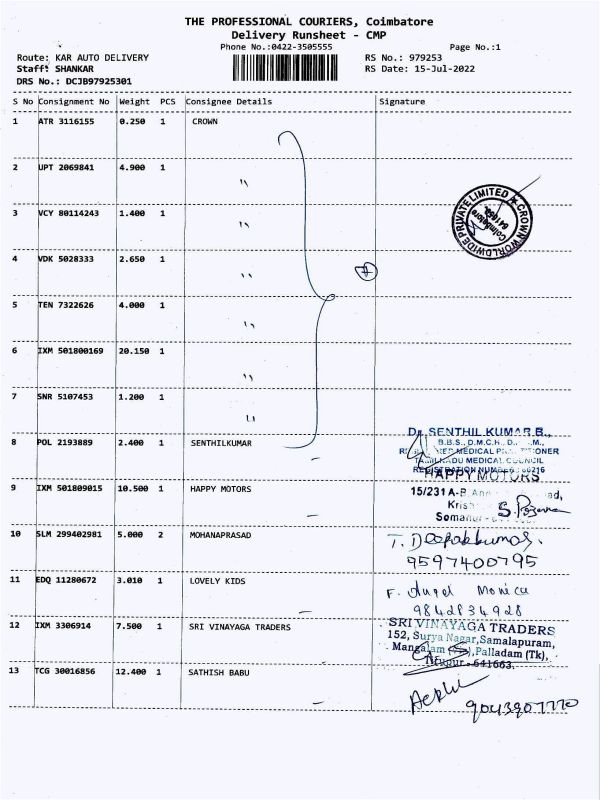 THE PROFESSIONAL COURIERS, Coimbatore
Delivery Runsheet - CMP
Phone No.:0422-3505555 Page No.:1
Route: KAR AUTO DELIVERY RS No.: 979253
Staff: SHANKAR RS Date: 15-Jul-2022
DRS No.: DCJB97925301
S No Consignment No Weight PCS Consignee Details Signature
1 ATR 3116155 0.250 1 CROWN
2 UPT 2069841 4.900 1 "
3 VCY 80114243 1.400 1 "
CROWN WORLDWIDE PRIVATE LIMITED
Coimbatore
4 VDK 5028333 2.650 1 "
7
5 TEN 7322626 4.000 1 "
6 IXM 501800169 20.150 1 "
7 SNR 5107453 1.200 1 "
8 POL 2193889 2.400 1 SENTHILKUMAR
Dr. SENTHIL KUMAR B.,
B.B.S., D.M.C.H.,
MEDICAL
TAMILNADU MEDICAL COUNCIL
REGISTRATION NUMBER
9 IXM 501809015 10.500 1 HAPPY MOTORS
HAPPY MOTORS
15/231 A-B
10 SLM 299402981 5.000 2 MOHANAPRASAD
T. Deepakkumar.
9597400795
11 EDQ 11280672 3.010 1 LOVELY KIDS
F. Angel Monica
9842834928
12 IXM 3306914 7.500 1 SRI VINAYAGA TRADERS
SRI VINAYAGA TRADERS
152, Surya Nagar, Samalapuram,
Mangalam Palladam (Tk),
Tirupur - 641663.
13 TCG 30016856 12.400 1 SATHISH BABU
9043907770